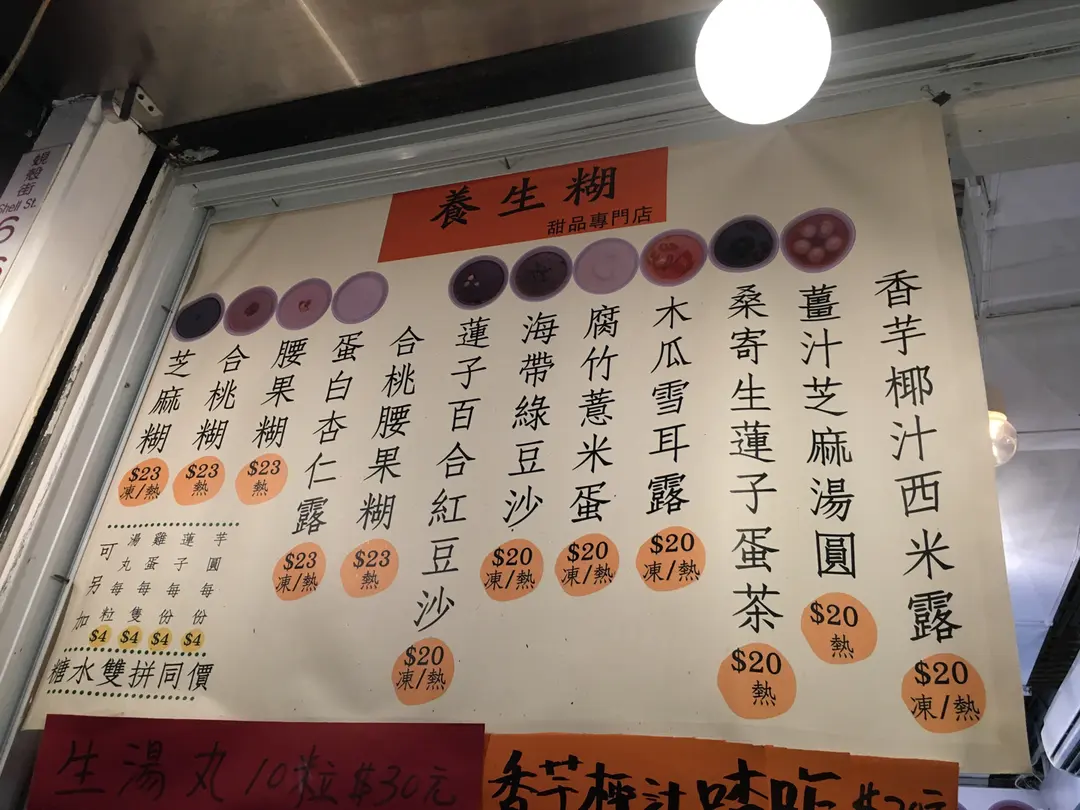 蜆殼街
Shell St.
養生糊
甜品專門店
香芋椰汁西米露
$20
凍/熱
薑汁芝麻湯圓
$20
熱
桑寄生蓮子蛋茶
$20
熱
木瓜雪耳露
$20
凍/熱
腐竹薏米蛋
$20
凍/熱
海帶綠豆沙
$20
凍/熱
蓮子百合紅豆沙
$20
凍/熱
合桃腰果糊
$23
熱
蛋白杏仁露
$23
凍/熱
腰果糊
$23
熱
合桃糊
$23
熱
芝麻糊
$23
凍/熱
可另加
芋圓每份
$4
蓮子每份
$4
雞蛋每隻
$4
湯丸每粒
$4
糖水雙拼同價
生湯丸10粒$30元
香芋椰汁喳咋